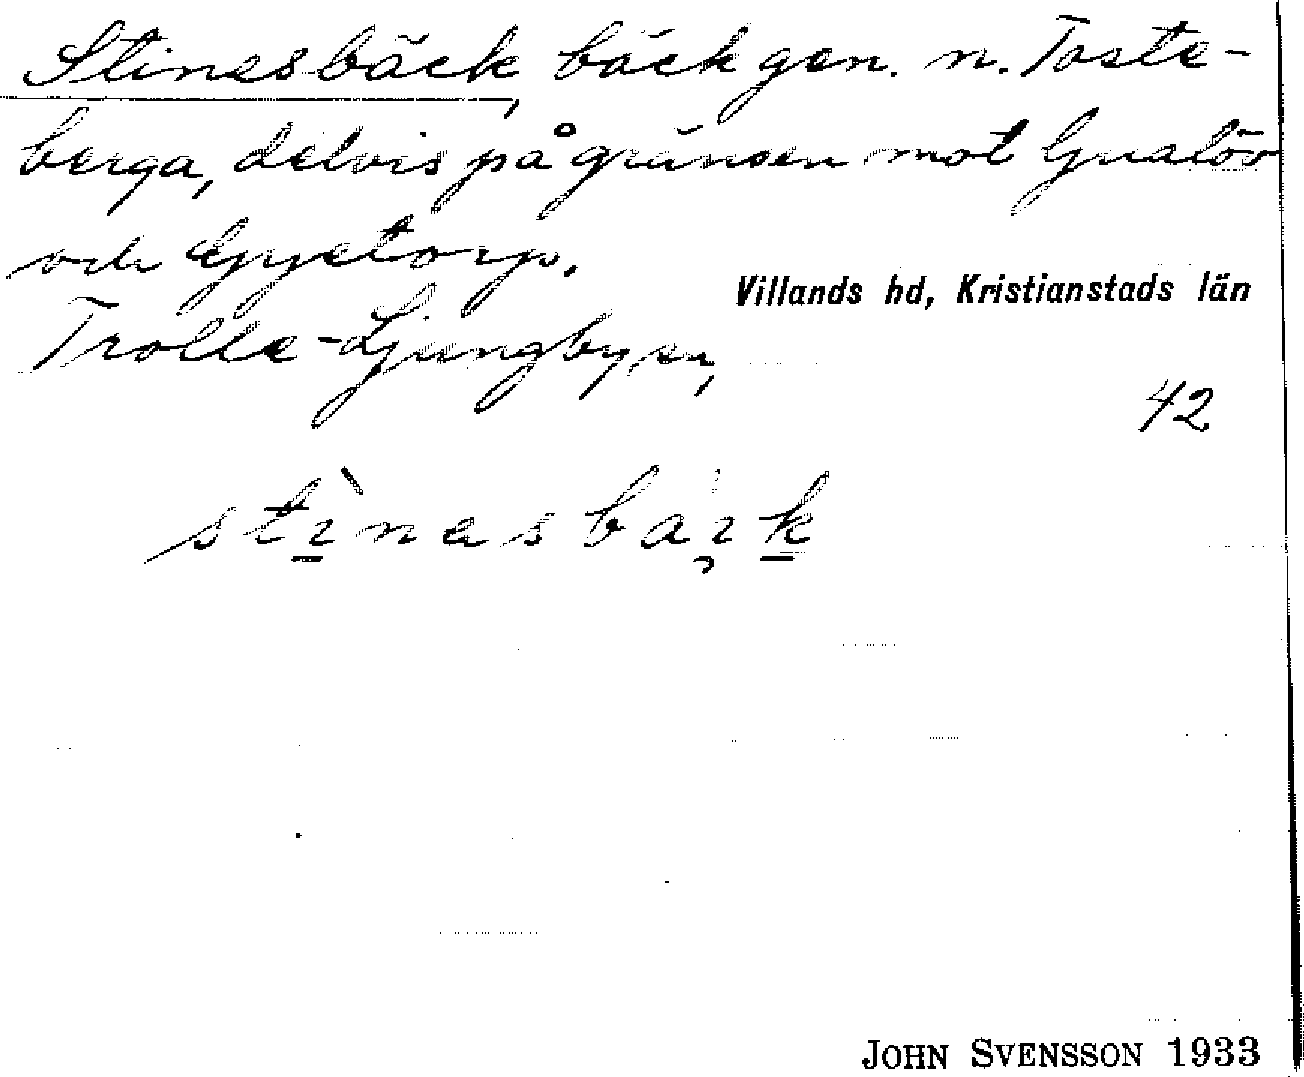 Stinesbäck, bäck gen. n. Toste-
berga, delvis på gränsen mot Gualöv
och Gyetorp.
Villands hd, Kristianstads län
Trolle-Ljungby sn,
42
stìnesbaık
JOHN SVENSSON 1933